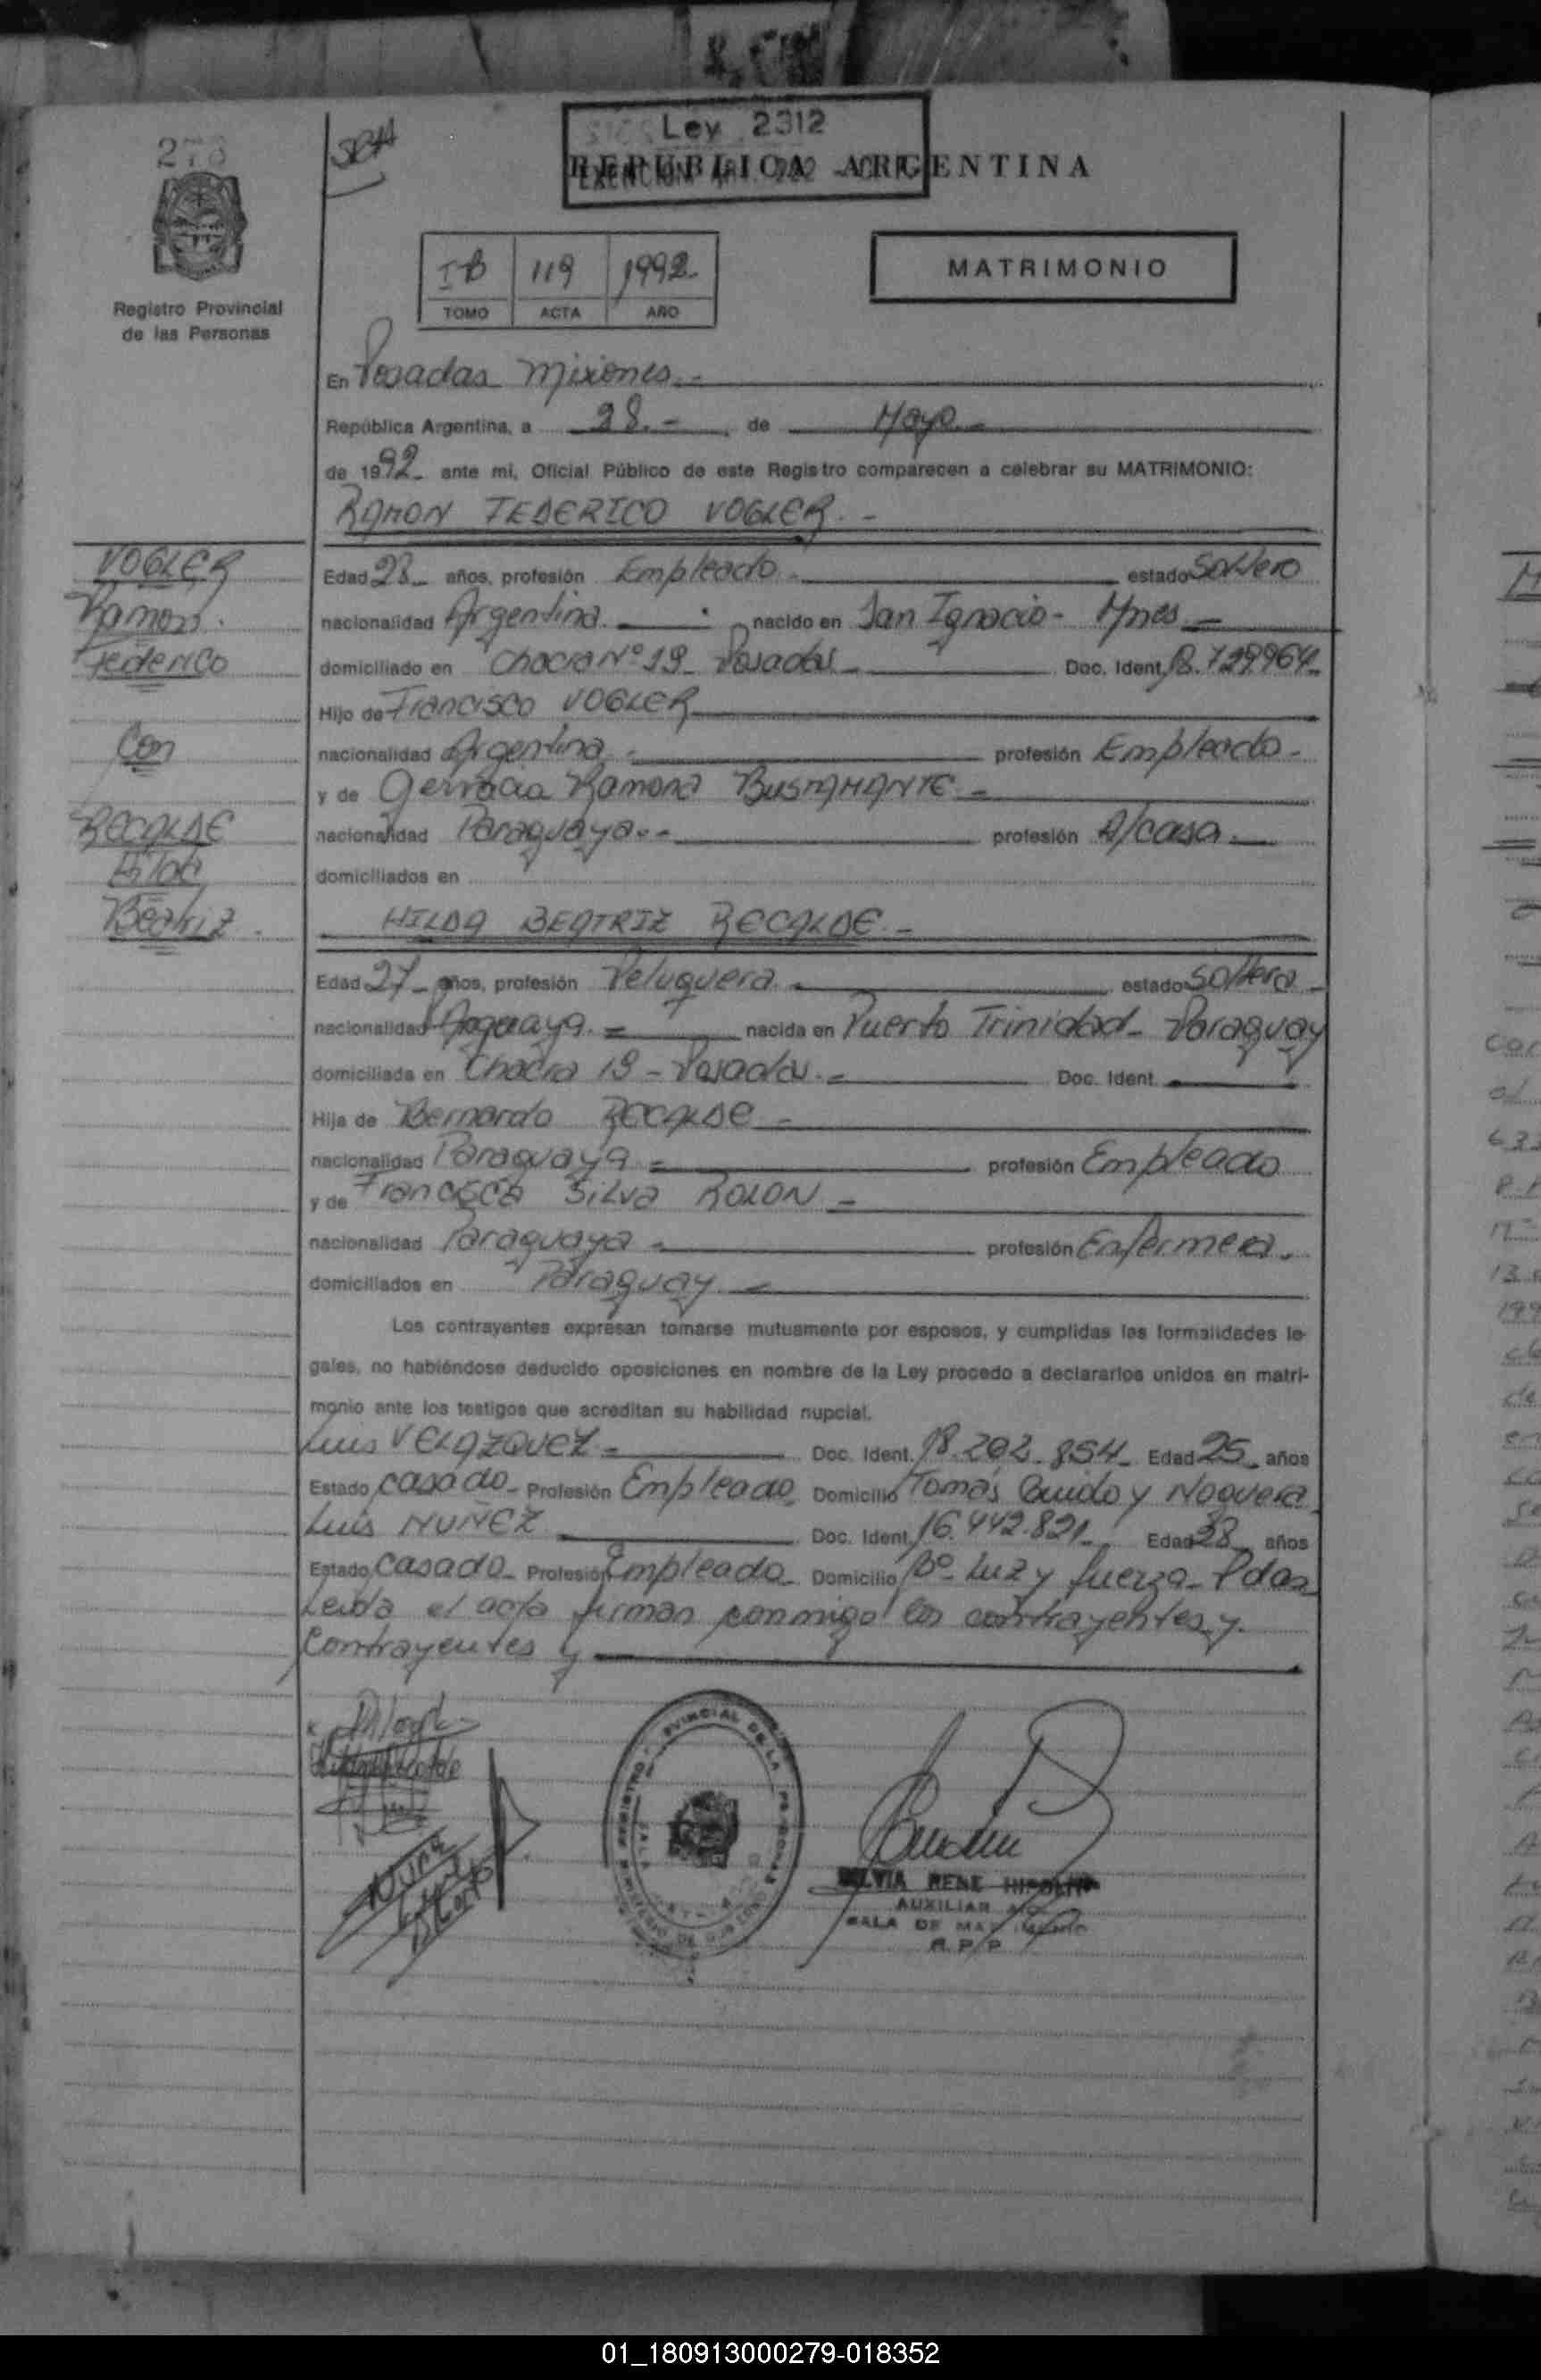 278
SEH
Ley 2312
REPUBLICA ARGENTINA
EXENCION
Registro Provincial
de las Personas
IB 119 1992.-
TOMO ACTA AÑO
MATRIMONIO
En Posadas Misiones.-
República Argentina, a 28.- de Mayo.-
de 1992- ante mi, Oficial Público de este Registro comparecen a celebrar su MATRIMONIO:
RAMON FEDERICO VOGLER.-
VOGLER
Ramon.
Federico
Con
RECALDE
Hilda
Beatriz.
Edad 28- años, profesión Empleado.- estado Soltero
nacionalidad Argentina.- nacido en San Ignacio- Mnes.-
domiciliado en Chacra Nº 19- Posadas- Doc. Ident. 18.729964-
Hijo de Francisco VOGLER
nacionalidad Argentina.- profesión Empleado-
y de Gervacia Ramona BUSTAMANTE.-
nacionalidad Paraguaya.- profesión A/casa.-
domiciliados en
HILDA BEATRIZ RECALDE.-
Edad 27- años, profesión Peluquera.- estado Soltera-
nacionalidad nacida en Puerto Trinidad- Paraguay
domiciliada en Chacra 19- Posadas.- Doc. Ident.
Hija de Bernardo RECALDE-
nacionalidad Paraguaya- profesión Empleado
y de Francisca Silva ROLON-
nacionalidad Paraguaya- profesión Enfermera.
domiciliados en Paraguay.-
Los contrayentes expresan tomarse mutuamente por esposos, y cumplidas las formalidades le-
gales, no habiéndose deducido oposiciones en nombre de la Ley procedo a declararlos unidos en matri-
monio ante los testigos que acreditan su habilidad nupcial.
Luis VELAZQUEZ- Doc. Ident. 18.202.854- Edad 25- años
Estado Casado- Profesión Empleado- Domicilio Tomás Guido y Noguera
Luis NUÑEZ Doc. Ident. 16.442.821- Edad 28- años
Estado Casado- Profesión Empleado- Domicilio Bº Luz y fuerza- Pdas
Leida el acta firman conmigo los contrayentes y
contrayentes y
SILVIA RENE HIPOLITO
AUXILIAR
SALA DE MATRIMONIO
R.P.P
01_180913000279-018352